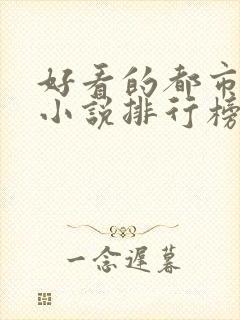 好看的都市
小说排行榜
一念遲暮